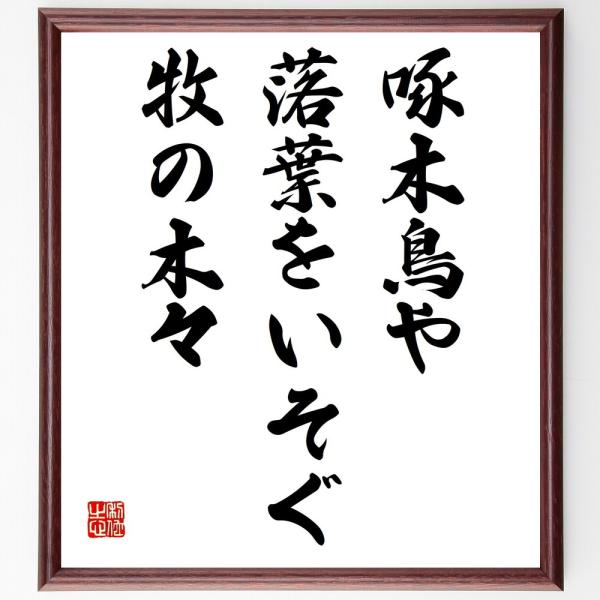 啄木鳥や
落葉をいそぐ
牧の木々